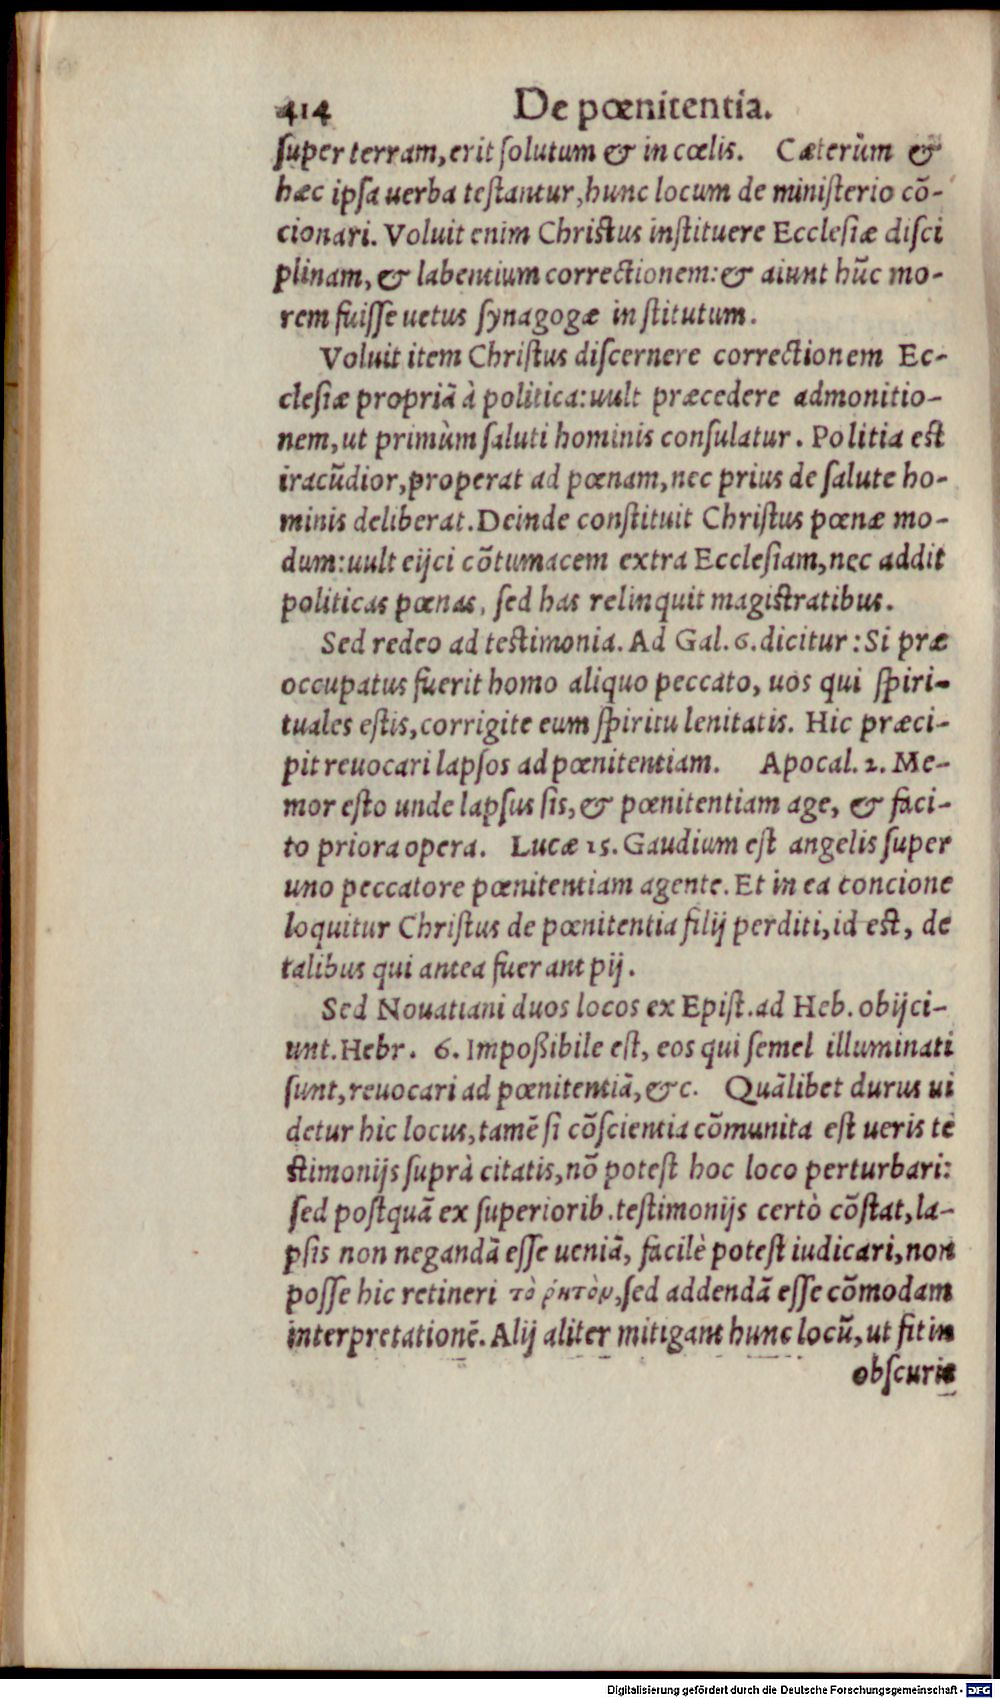 414 De pœnitentia.
ſuper terram, erit ſolutum & in cœlis. Cæterùm &
hæc ipſa uerba teſtantur, hunc locum de miniſterio cō-
cionari. Voluit enim Chriſtus inſtituere Eccleſiæ diſci
plinam, & labentium correctionem: & aiunt hūc mo-
rem fuiſſe uetus ſynagogæ inſtitutum.
Voluit item Chriſtus diſcernere correctionem Ec-
cleſiæ propriā à politica: uult præcedere admonitio-
nem, ut primùm ſaluti hominis conſulatur. Politia eſt
iracūdior, properat ad pœnam, nec prius de ſalute ho-
minis deliberat. Deinde conſtituit Chriſtus pœnæ mo-
dum: uult eijci cōtumacem extra Eccleſiam, nec addit
politicas pœnas, ſed has relinquit magiſtratibus.
Sed redeo ad teſtimonia. Ad Gal. 6. dicitur: Si præ
occupatus fuerit homo aliquo peccato, uos qui ſpiri-
tuales eſtis, corrigite eum ſpiritu lenitatis. Hic præci-
pit reuocari lapſos ad pœnitentiam. Apocal. 2. Me-
mor eſto unde lapſus ſis, & pœnitentiam age, & faci-
to priora opera. Lucæ 15. Gaudium eſt angelis ſuper
uno peccatore pœnitentiam agente. Et in ea concione
loquitur Chriſtus de pœnitentia filij perditi, id eſt, de
talibus qui antea fuerant pij.
Sed Nouatiani duos locos ex Epiſt. ad Heb. obijci-
unt. Hebr. 6. Impoßibile eſt, eos qui ſemel illuminati
ſunt, reuocari ad pœnitentiā, &c. Quālibet durus ui
detur hic locus, tamē ſi cōſcientia cōmunita eſt ueris te
ſtimonijs ſuprà citatis, nō poteſt hoc loco perturbari:
ſed poſtquā ex ſuperiorib. teſtimonijs certò cōſtat, la-
pſis non negandā eſſe ueniā, facilè poteſt iudicari, non
poſſe hic retineri τὸ ῥητὸν, ſed addendā eſſe cōmodam
interpretationē. Alij aliter mitigant hunc locū, ut fit in
obſcuris
Digitalisierung gefördert durch die Deutsche Forschungsgemeinschaft - DFG